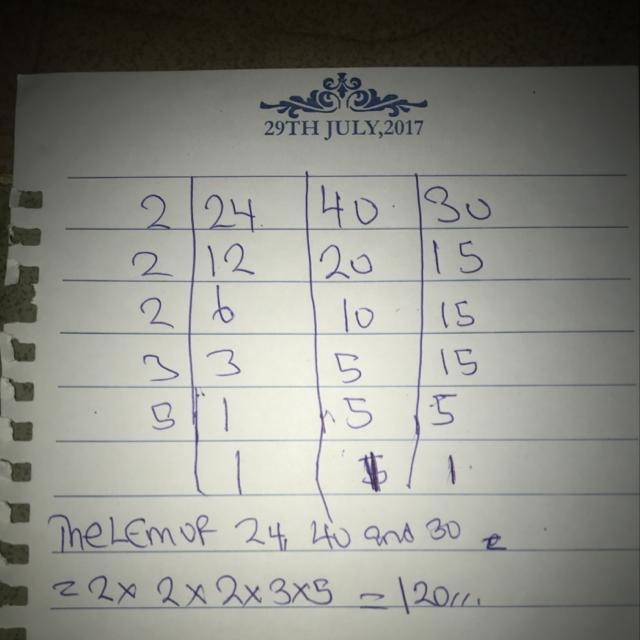 29TH JULY,2017
2 24 40 30
2 12 20 15
2 6 10 15
3 3 5 15
5 1 5 5
1 1 1
The LCM of 24, 40 and 30 =
= 2 x 2 x 2 x 3 x 5 = 120,,,